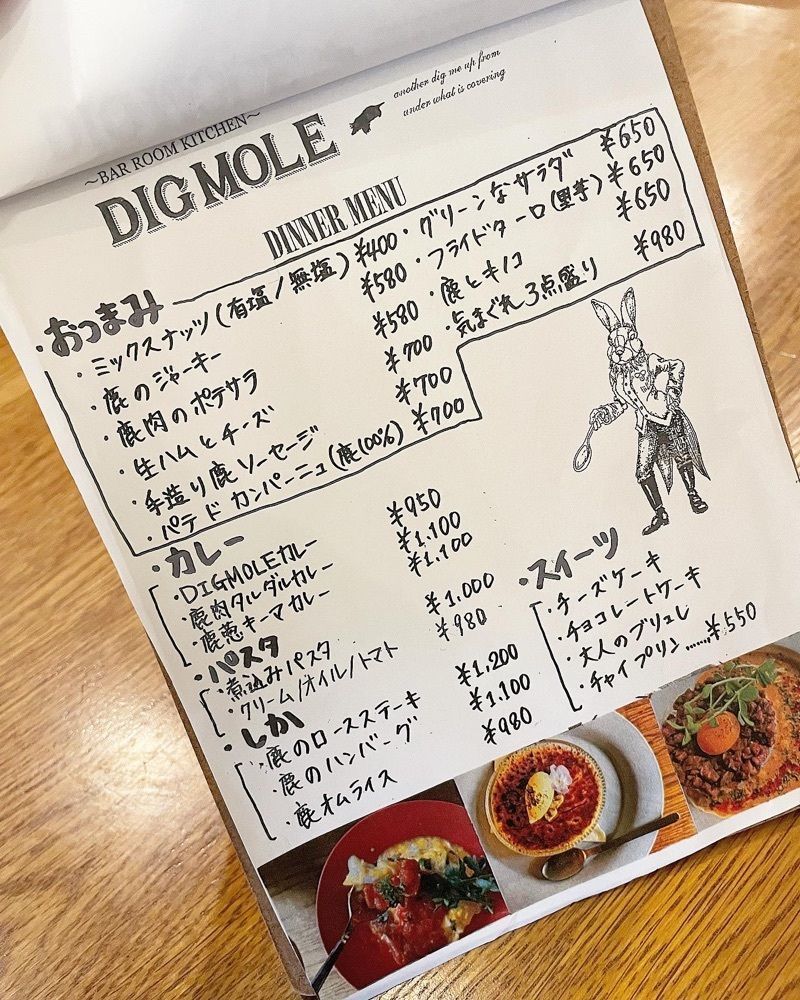 〜BAR ROOM KITCHEN〜
DIGMOLE
another dig me up from
under what is covering
DINNER MENU
・おつまみ
・ミックスナッツ(有塩/無塩) ¥400
・鹿のジャーキー ¥580
・鹿肉のポテサラ ¥580
・生ハムとチーズ ¥700
・手造り鹿ソーセージ ¥700
・パテドカンパーニュ(鹿100%) ¥700
・グリーンなサラダ ¥650
・フライドターロ(里芋) ¥650
・鹿とキノコ ¥650
・気まぐれ3点盛り ¥980
・カレー
・DIGMOLEカレー ¥950
・鹿肉タルダルカレー ¥1,100
・鹿葱キーマカレー ¥1,100
・パスタ
・煮込みパスタ ¥1,000
・クリーム/オイル/トマト ¥980
・しか
・鹿のロースステーキ ¥1,200
・鹿のハンバーグ ¥1,100
・鹿オムライス ¥980
・スイーツ
・チーズケーキ
・チョコレートケーキ
・大人のブリュレ
・チャイプリン……¥550